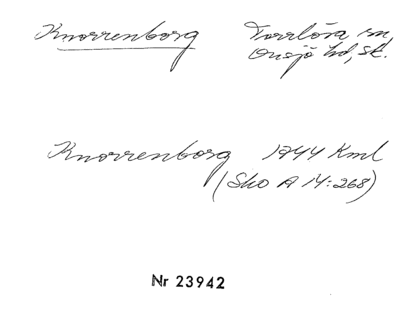 Knorrenborg Torrlösa sn,
Onsjö hd, Sk.
Knorrenborg 1744 Kml
(Sko A 14:268)
Nr 23942